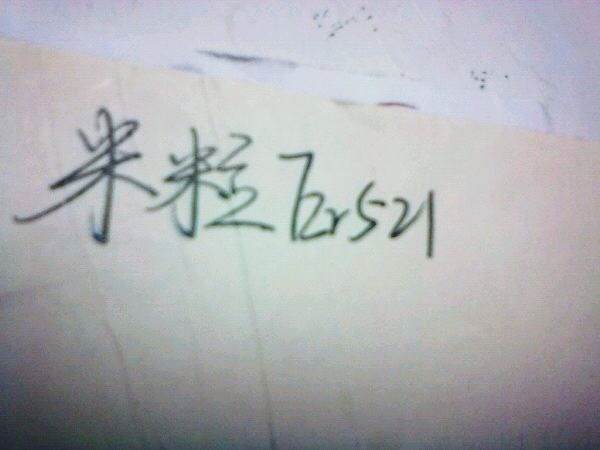 米粒zr521